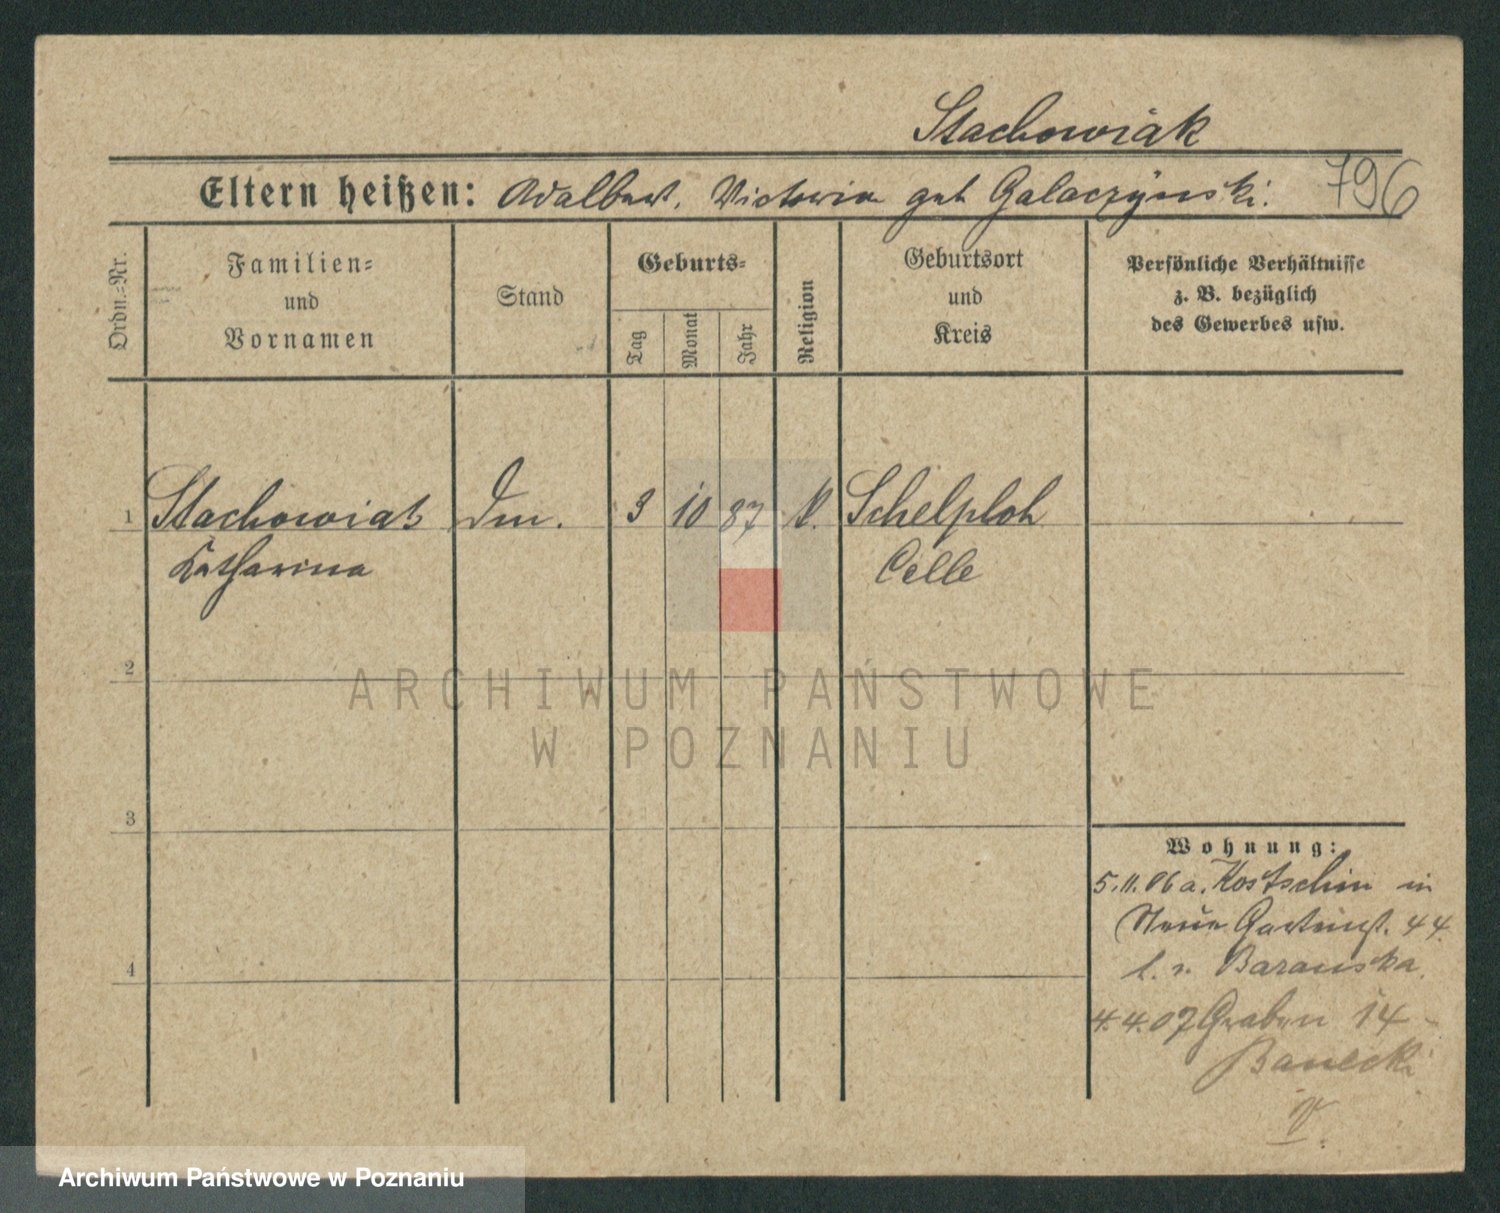 Stachowiak
Eltern heißen: Adalbert, Victoria geb Galaczynski.
796
Ordn.=Nr.
Familien=
und
Vornamen
Stand
Geburts=
Tag
Monat
Jahr
Religion
Geburtsort
und
Kreis
Persönliche Verhältnisse
z. B. bezüglich
des Gewerbes usw.
1 Stachowiak Dm. 3 10 87 k. Schelploh
Katharina Celle
2
3
4
Wohnung:
5.11.06 a. Kostschin in
Neue Gartenst. 44
b. Baranska.
4.4.07 Graben 14
Banecki
ARCHIWUM PAŃSTWOWE
W POZNANIU
Archiwum Państwowe w Poznaniu